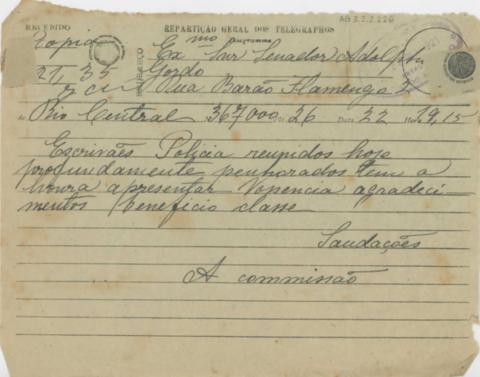 AG 3.2.2.226
RECEBIDO REPARTIÇÃO GERAL DOS TELEGRAPHOS
Copia Exmo Snr Senador Adolpho
21,35 Gordo
Rua Barão Flamengo 2
de Rio Central 367000 26 Data 22 Hora 19,15
Escrivães Policia reunidos hoje
profundamente penhorados tem a
honra apresentar Vopencia agradeci-
mentos beneficio classe
Saudações
A commissão